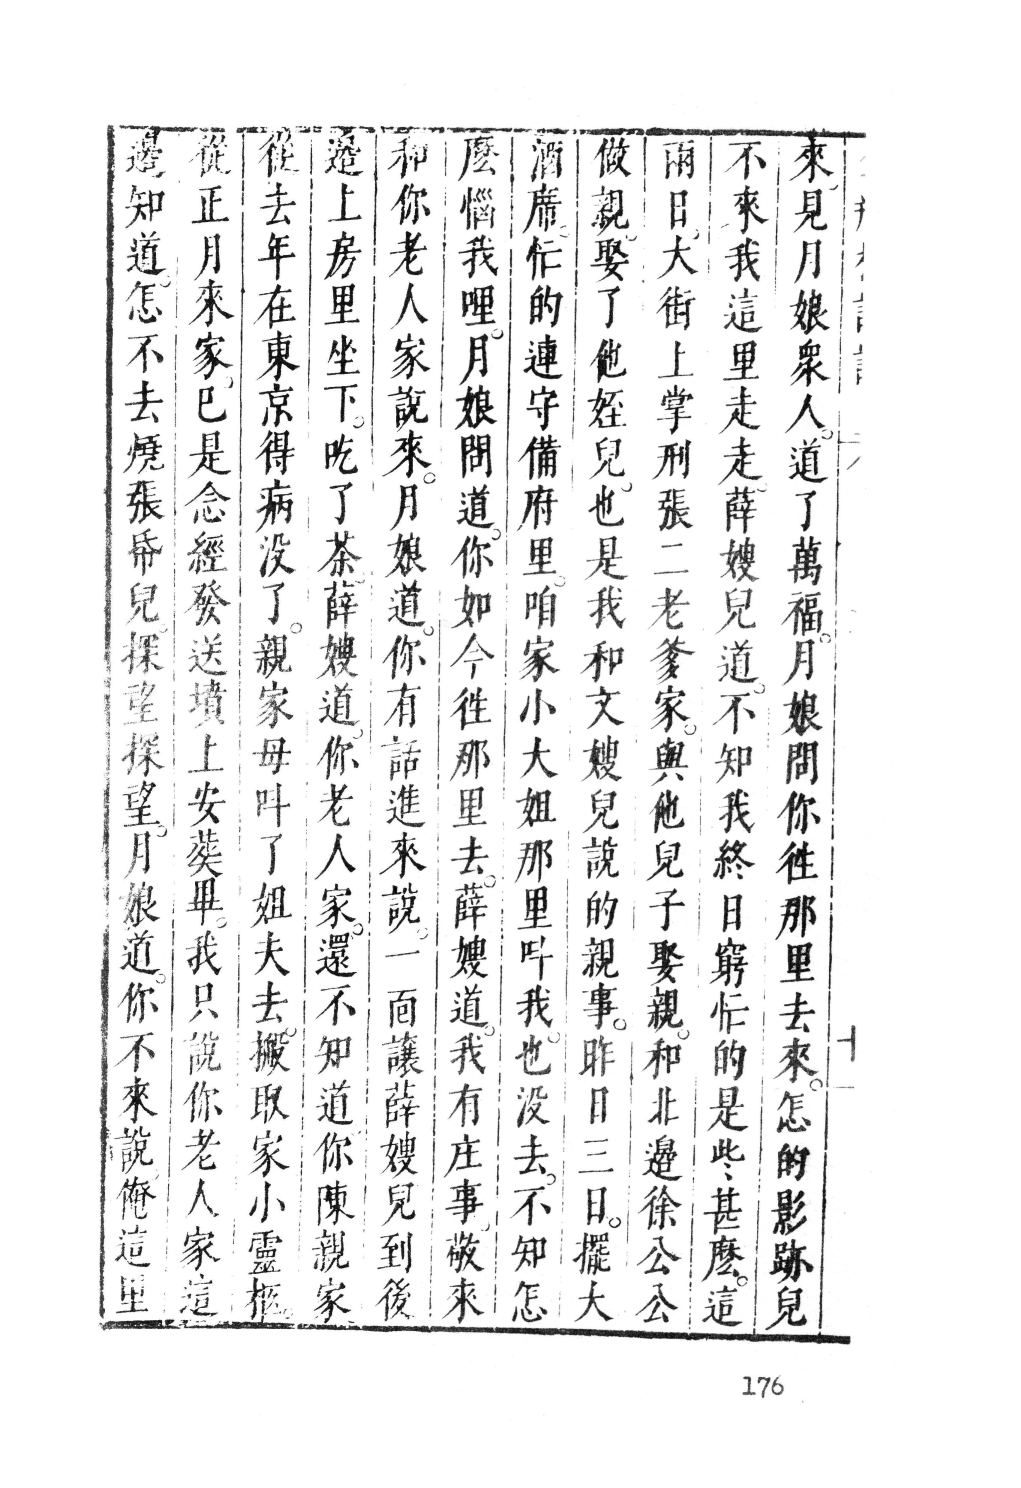 來見月娘衆人。道了萬福。月娘問你徃那里去來。怎的影跡兒
不來我這里走走。薛嫂兒道。不知我終日窮忙的是些甚麽。這
兩日。大街上掌刑張二老爹家。與他兒子娶親。和北邉徐公公
做親。娶了他姪兒。也是我和文嫂兒說的親事。昨日三日。擺大
酒席。忙的連守備府里。咱家小大姐那里呌我。也没去。不知怎
麽惱我哩。月娘問道。你如今徃那里去。薛嫂道。我有庄事。敬來
和你老人家說來。月娘道。你有話進來說。一面讓薛嫂兒到後
邉上房里坐下。吃了茶。薛嫂道。你老人家。還不知道。你陳親家
從去年在東京得病没了。親家母呌了姐夫去。搬取家小靈柩。
從正月來家。已是念經發送墳上安葬畢。我只說你老人家這
邉知道。怎不去燒張帋兒。探望探望。月娘道。你不來說。俺這里
十
176